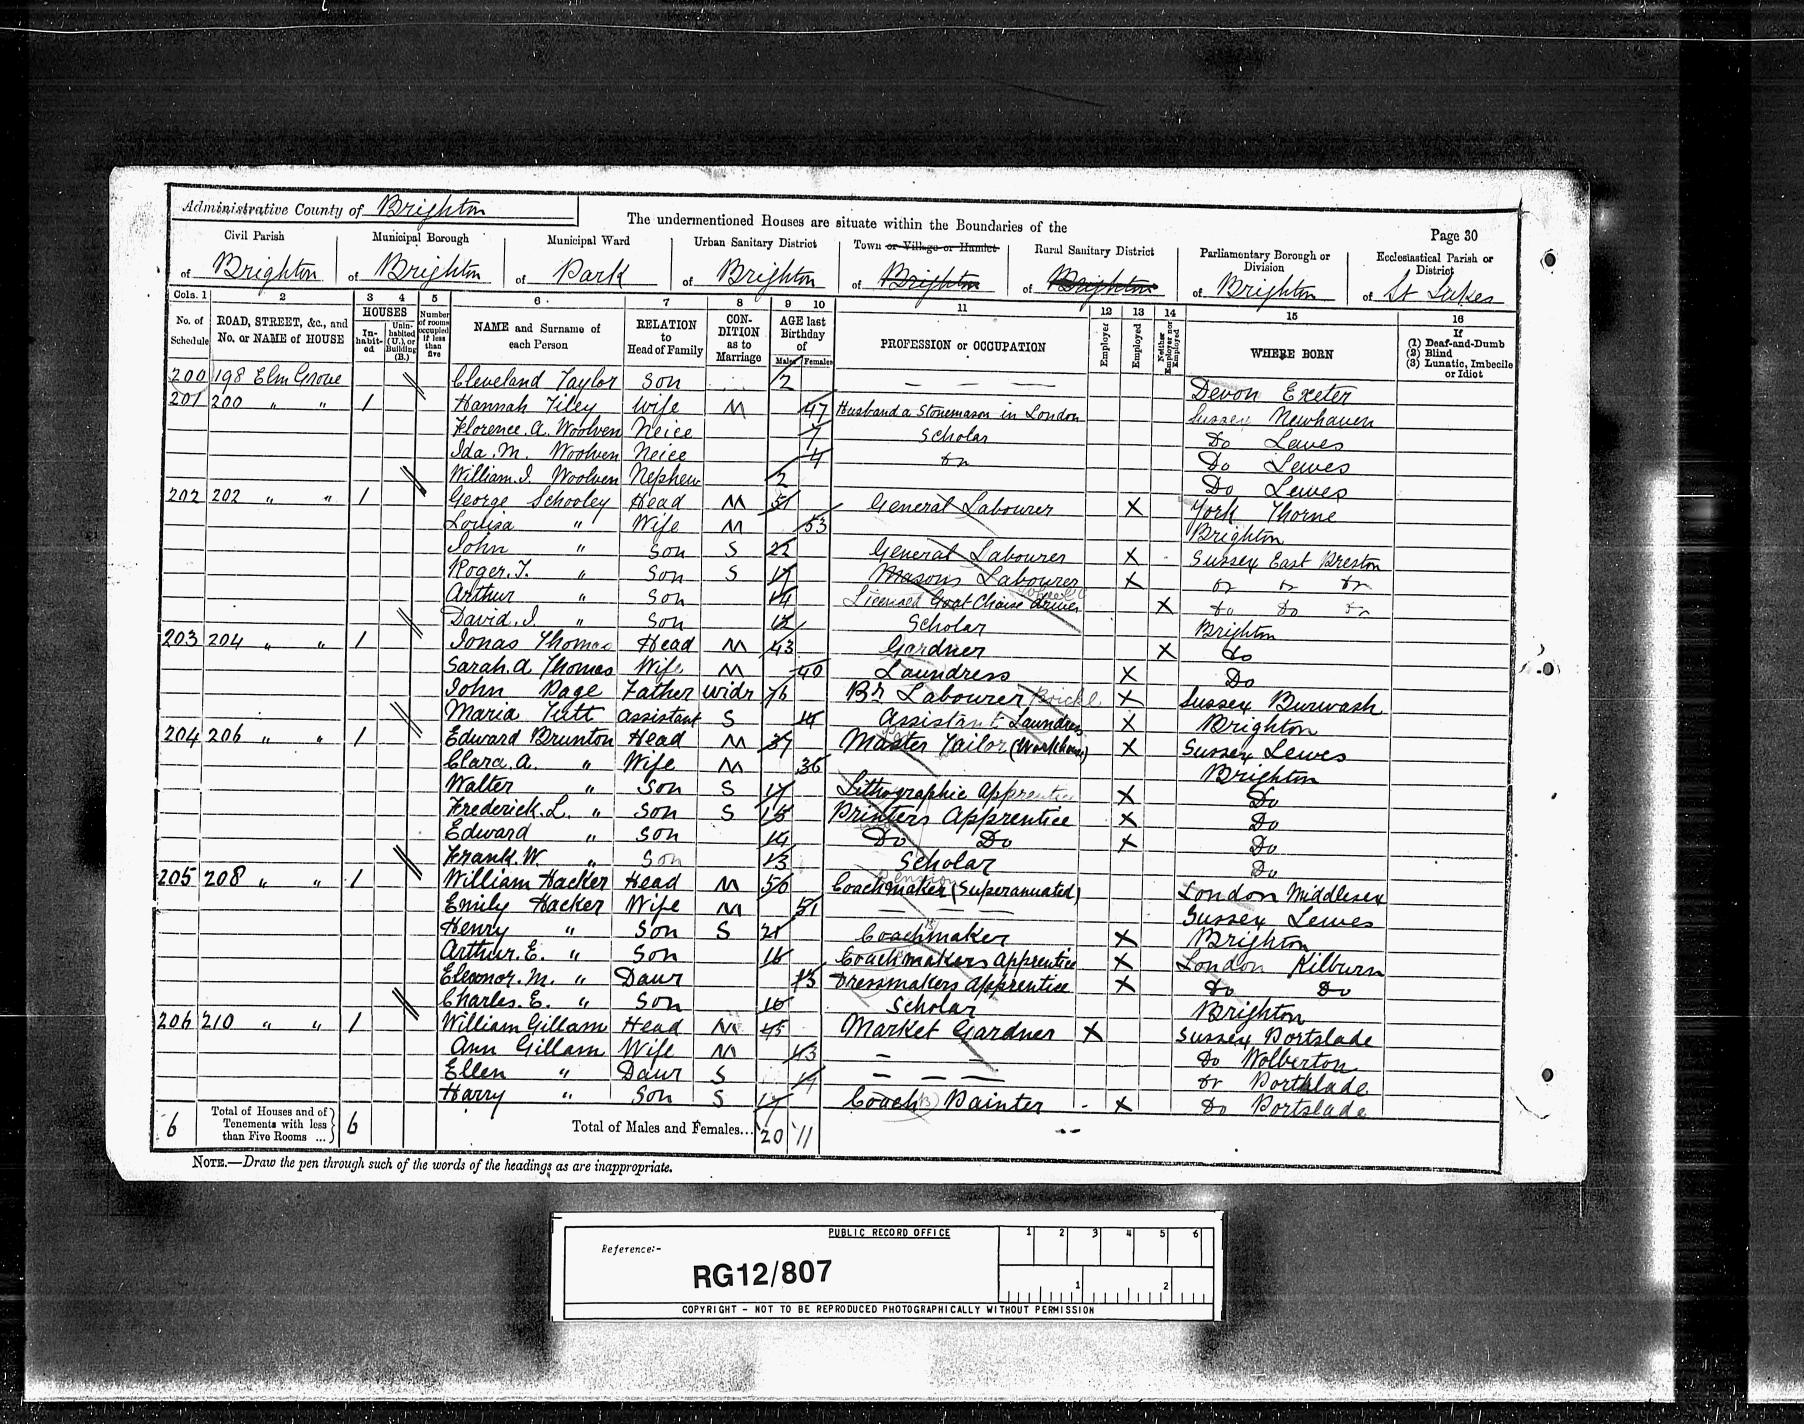 Administrative County of Brighton
The undermentioned Houses are situate within the Boundaries of the
Page 30
Civil Parish of Brighton
Municipal Borough of Brighton
Municipal Ward of Park
Urban Sanitary District of Brighton
Town or Village or Hamlet of Brighton
Rural Sanitary District of Brighton
Parliamentary Borough or Division of Brighton
Ecclesiastical Parish or District of St Lukes
Cols. 1 2 3 4 5 6 7 8 9 10 11 12 13 14 15 16
No. of Schedule
ROAD, STREET, &c., and No. or NAME of HOUSE
HOUSES
Inhabited
Uninhabited (U.), or Building (B.)
Number of rooms occupied if less than five
NAME and Surname of each Person
RELATION to Head of Family
CONDITION as to Marriage
AGE last Birthday of
Males Females
PROFESSION or OCCUPATION
Employer
Employed
Neither Employer nor Employed
WHERE BORN
If (1) Deaf-and-Dumb (2) Blind (3) Lunatic, Imbecile or Idiot
200 198 Elm Grove Cleveland Taylor Son 2 — — — — Devon Exeter
201 200 " " 1 Hannah Tiley Wife M 47 Husband a Stonemason in London Sussex Newhaven
Florence. A. Woolven Neice 7 Scholar Do Lewes
Ida. M. Woolven Neice 4 Do Do Lewes
William. I. Woolven Nephew 2 Do Lewes
202 202 " " 1 George Schooley Head M 51 General Labourer X York Thorne
Louisa " Wife M 53 Brighton
John " Son S 22 General Labourer X Sussex East Preston
Roger. T. " Son S Masons Labourer X Do Do Do
Arthur " Son 14 Licensed Goat Chaise driver X Do Do Do
David. I. " Son 12 Scholar Brighton
203 204 " " 1 Jonas Thomas Head M 43 Gardner X Do
Sarah. A Thomas Wife M 40 Laundress X Do
John Page Father Widr 76 Br Labourer X Sussex Burwash
Maria Tutt Assistant S Assistant Laundress X Brighton
204 206 " " 1 Edward Brunton Head M 37 Master Tailor (Workhouse) X Sussex Lewes
Clara. A. " Wife M 36 Brighton
Walter " Son S 17 Lithographic Apprentice X Do
Frederick. L. " Son S 15 Printers Apprentice X Do
Edward " Son 14 Do Do X Do
Frank. W. " Son 13 Scholar Do
205 208 " " 1 William Hacker Head M 56 Coachmaker (Superanuated) London Middlesex
Emily Hacker Wife M 51 — — — — Sussex Lewes
Henry " Son S 21 Coachmaker X Brighton
Arthur. E. " Son 16 Coachmakers Apprentice X London Kilburn
Eleanor. M. " Daur 13 Dressmakers Apprentice X Do Do
Charles. E. " Son 10 Scholar Brighton
206 210 " " 1 William Gillam Head M 45 Market Gardner X Sussex Portslade
Ann Gillam Wife M 43 — — Do Wolberton
Ellen " Daur S 19 — — — — Do Portslade
Harry " Son S 17 Coach Painter X Do Portslade
6 Total of Houses and of Tenements with less than Five Rooms ... 6 Total of Males and Females... 20 11
NOTE.—Draw the pen through such of the words of the headings as are inappropriate.
PUBLIC RECORD OFFICE
1 2 3 4 5 6
Reference:-
RG12/807
1 2
COPYRIGHT - NOT TO BE REPRODUCED PHOTOGRAPHICALLY WITHOUT PERMISSION